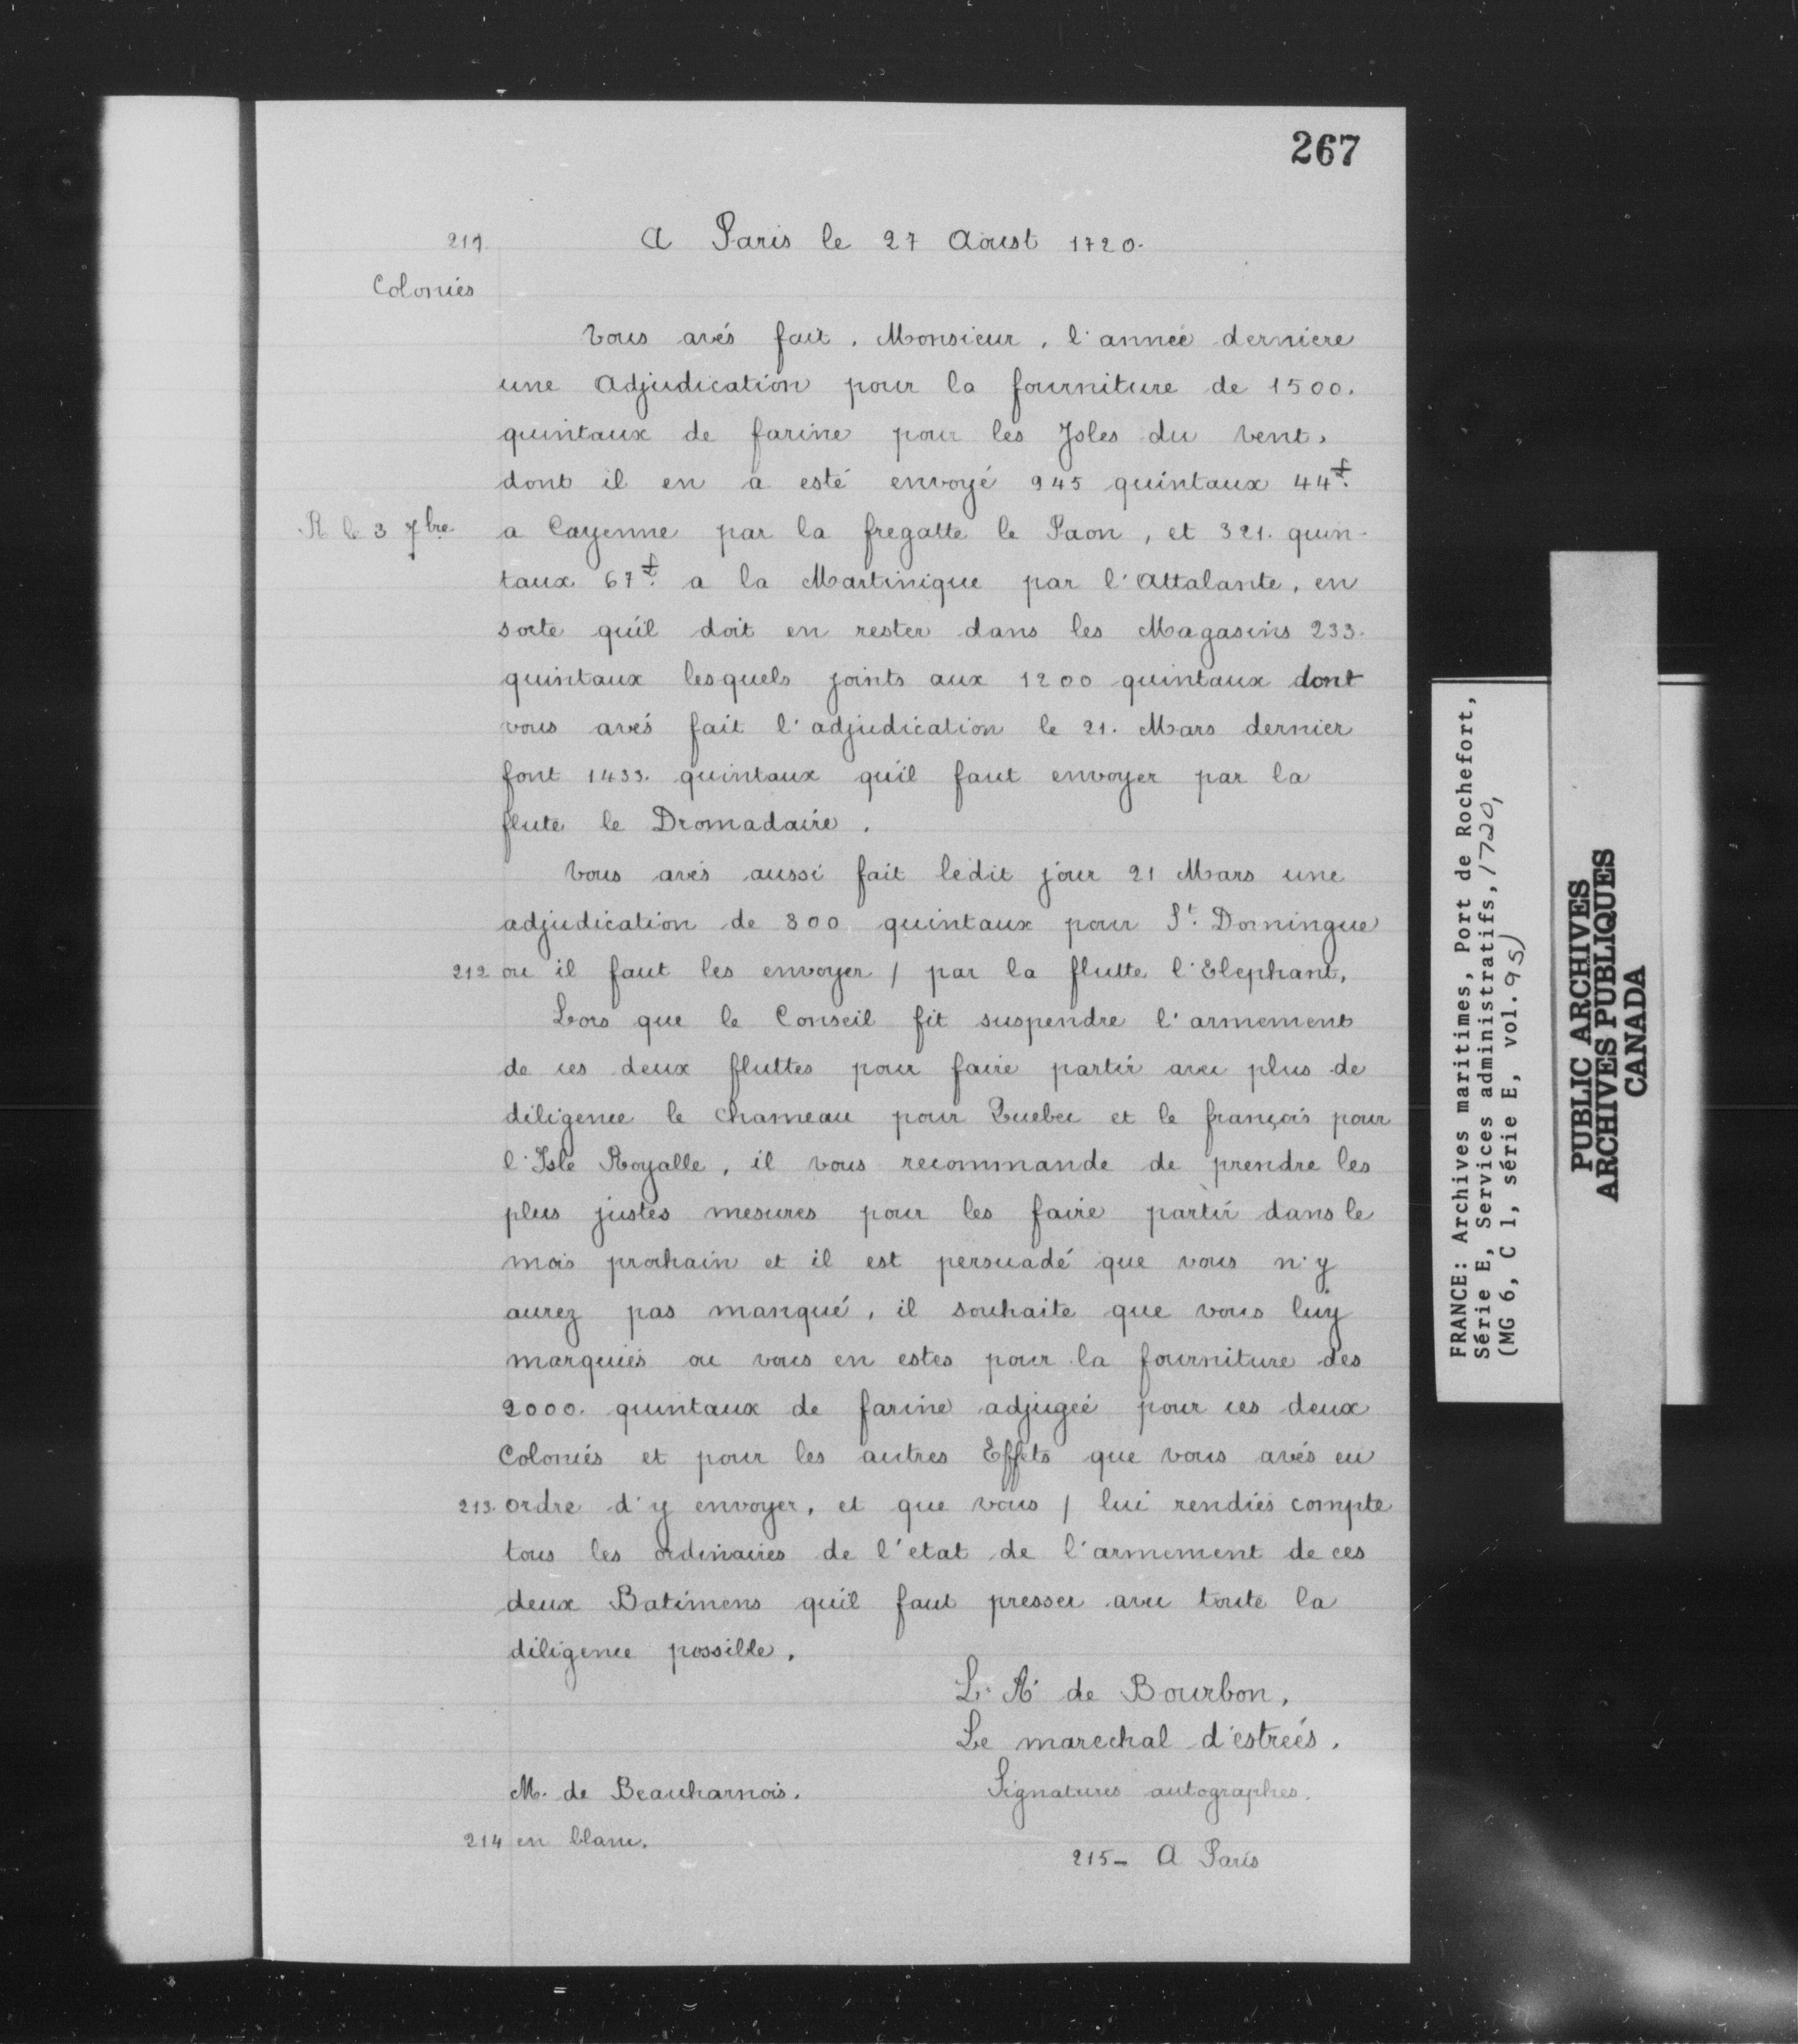 267
211.
A Paris le 27 Aoust 1720.
Colonies
Vous avés fait, Monsieur, l'année derniere
une Adjudication pour la fourniture de 1500.
quintaux de farine pour les Isles du vent,
dont il en a esté envoyé 945 quintaux 44ᵗ.
R le 3 7bre
a Cayenne par la fregatte le Paon, et 321. quin-
taux 67ᵗ. a la Martinique par l'Attalante, en
sorte qu'il doit en rester dans les Magasins 233.
quintaux lesquels joints aux 1200 quintaux dont
vous avés fait l'adjudication le 21. Mars dernier
font 1433. quintaux qu'il faut envoyer par la
flute le Dromadaire.
Vous avés aussi fait ledit jour 21 Mars une
adjudication de 300 quintaux pour St. Domingue
212 ou il faut les envoyer / par la flutte l'Elephant,
Lors que le Conseil fit suspendre l'armement
de ces deux fluttes pour faire partir avec plus de
diligence le Chameau pour Quebec et le françois pour
l'Isle Royalle, il vous recommande de prendre les
plus justes mesures pour les faire partir dans le
mois prochain et il est persuadé que vous n'y
aurez pas manqué, il souhaite que vous luy
marquiés ou vous en estes pour la fourniture des
2000. quintaux de farine adjugée pour ces deux
Colonies et pour les autres Effets que vous avés eu
213. ordre d'y envoyer, et que vous / lui rendiés compte
tous les ordinaires de l'etat de l'armement de ces
deux Batimens qu'il faut presser avec toute la
diligence possible.
L. A. de Bourbon,
Le marechal d'estrées.
M. de Beauharnois.
Signatures autographes.
214 en blanc.
215- A Paris
FRANCE: Archives maritimes, Port de Rochefort,
Série E, Services administratifs, 1720,
(MG 6, C 1, série E, vol. 95)
PUBLIC ARCHIVES
ARCHIVES PUBLIQUES
CANADA